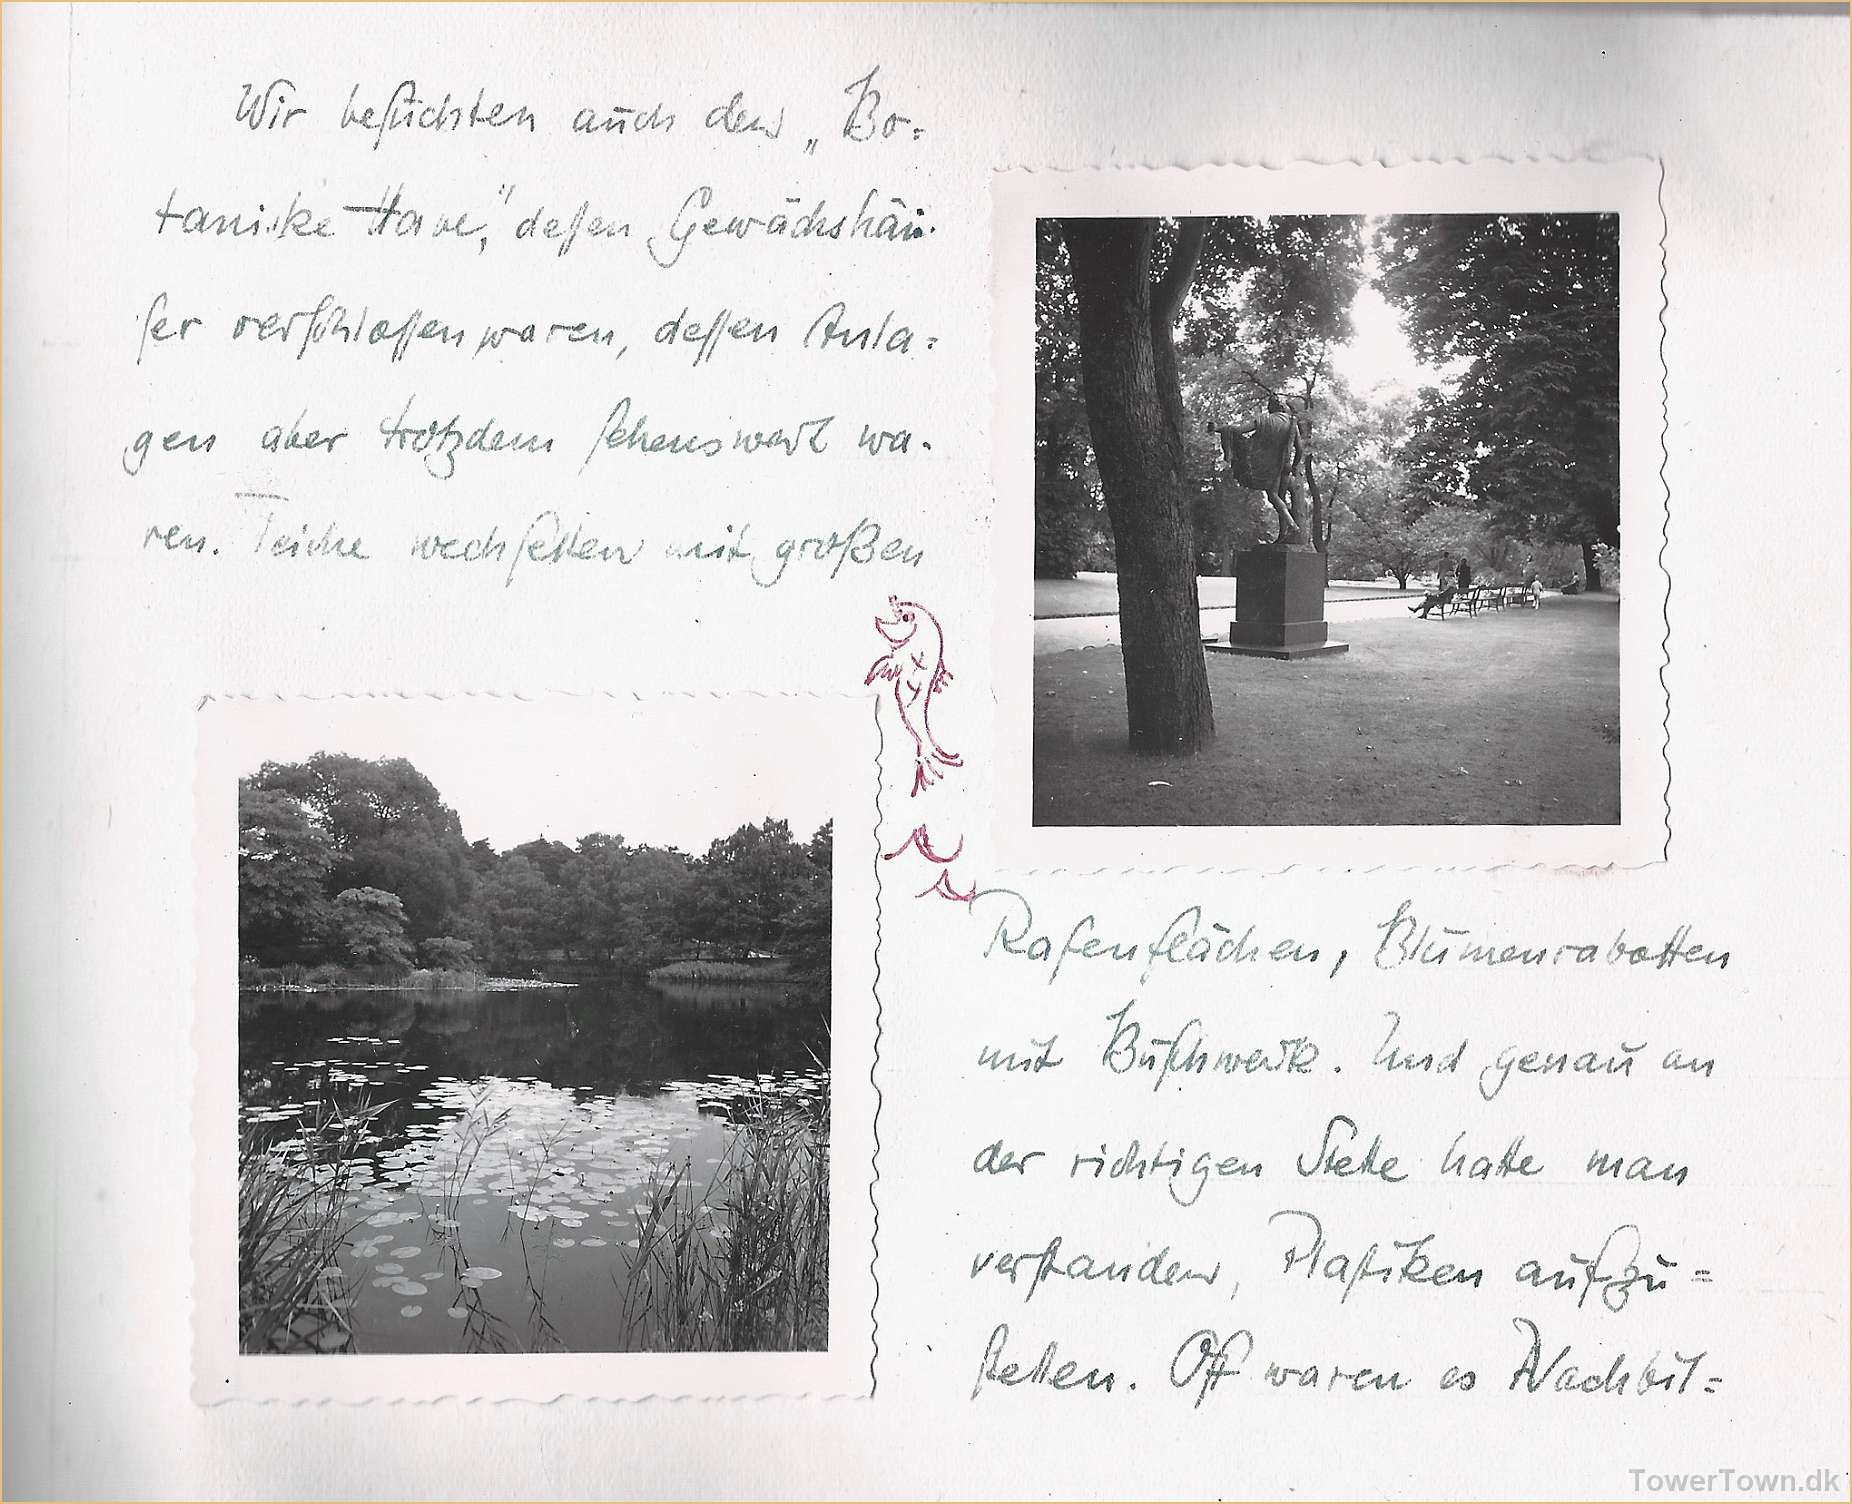 Wir besuchten auch den „Bo=
taniske Have“, dessen Gewächshäu-
ser verschlossen waren, dessen Anla=
gen aber trotzdem sehenswert wa-
ren. Teiche wechselten mit großen
Rasenflächen, Blumenrabatten
mit Buschwerk. Und genau an
der richtigen Stelle hatte man
verstanden, Plastiken aufzu=
stellen. Oft waren es Nachbil=
TowerTown.dk